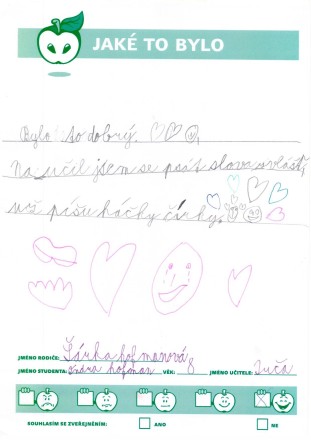 JAKÉ TO BYLO
Bylo to dobrý.
Na učil jsem se psát slova zvlášť,
už píšu háčky čárky.
JMÉNO RODIČE: Šárka hofmanová
JMÉNO STUDENTA: hofman VĚK: 8 JMÉNO UČITELE:
SOUHLASÍM SE ZVEŘEJNĚNÍM: ANO NE